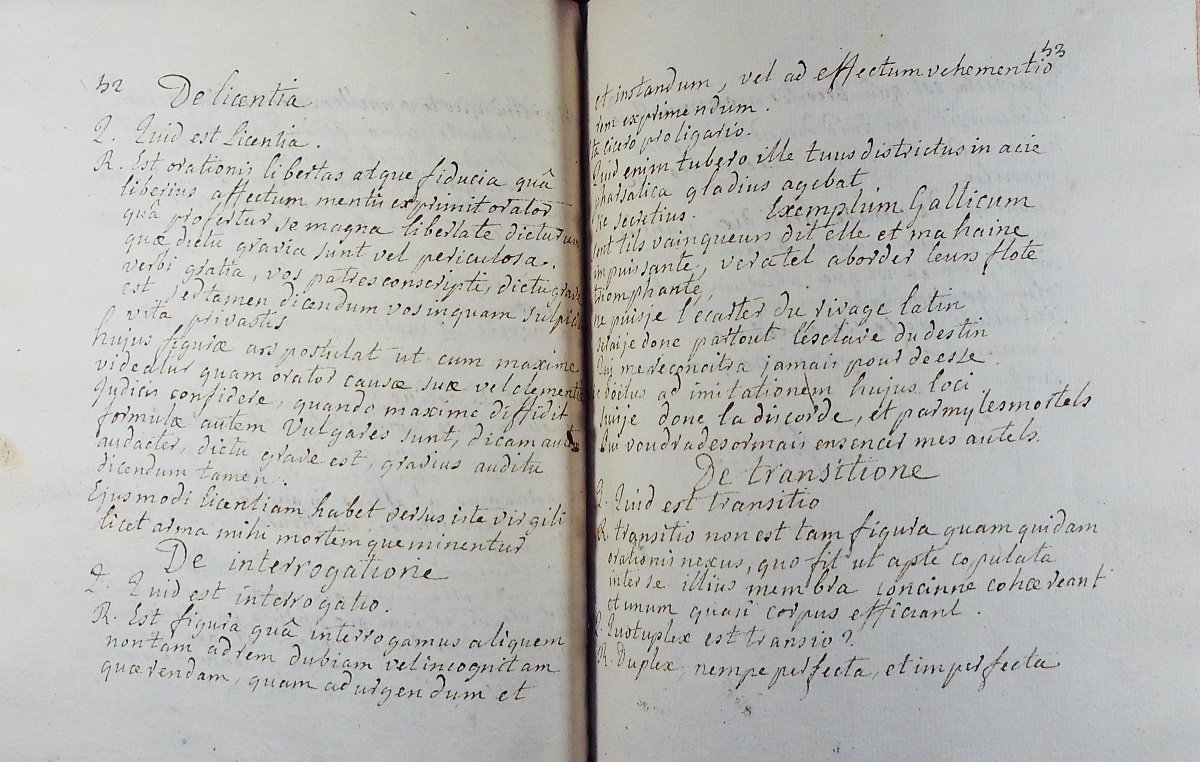 52
De licentia
Q. Quid est licentia.
R. Est orationis libertas atque fiducia quâ
liberius affectum mentis exprimit orator
quâ profertur se magna libertate dicturum
quæ dictu gravia sunt vel periculosa.
verbi gratia, vos patres conscripti, dictu grave
est sedtamen dicendum vos inquam
vitâ privastis
hujus figuræ ars postulat ut cum maxime
videatur quam orator causæ suæ vel clementiæ
Judicis confidere, quando maxime diffidit
formulæ autem vulgares sunt, dicam autem
audacter, dictu grave est, gravius auditu
dicendum tamen.
Ejusmodi licentiam habet versus iste virgili
licet arma mihi mortemque minentur
De interrogatione
Q. Quid est interrogatio.
R. Est figura quâ interrogamus aliquem
non tam ad rem dubiam vel incognitam
quærendam, quam ad urgendum et
53
et instandum, vel ad effectum vehementio
rem exprimendum.
ita cicero pro ligario.
Quid enim tubero ille tuus districtus in acie
pharsalica gladius agebat
secretius. Exemplum Gallicum
sont tils vainqueurs dit elle et ma haine
impuissante, veratel aborder leurs flote
triomphante,
ne puisje l'écarter du rivage latin
donc partout l'esclave du destin
me reconoitra jamais pour deesse.
ad imitationem hujus loci
suisje donc la discorde, et parmy les mortels
qui voudra desormais ensencer mes autels.
De transitione
Q. Quid est transitio
R transitio non est tam figura quam quidam
orationis nexus, quo fit ut apte copulata
inter se illius membra concinne cohæreant
et unum quasi corpus efficiant.
Q. Quotuplex est transio?
R. Duplex, nempe perfecta, et imperfecta